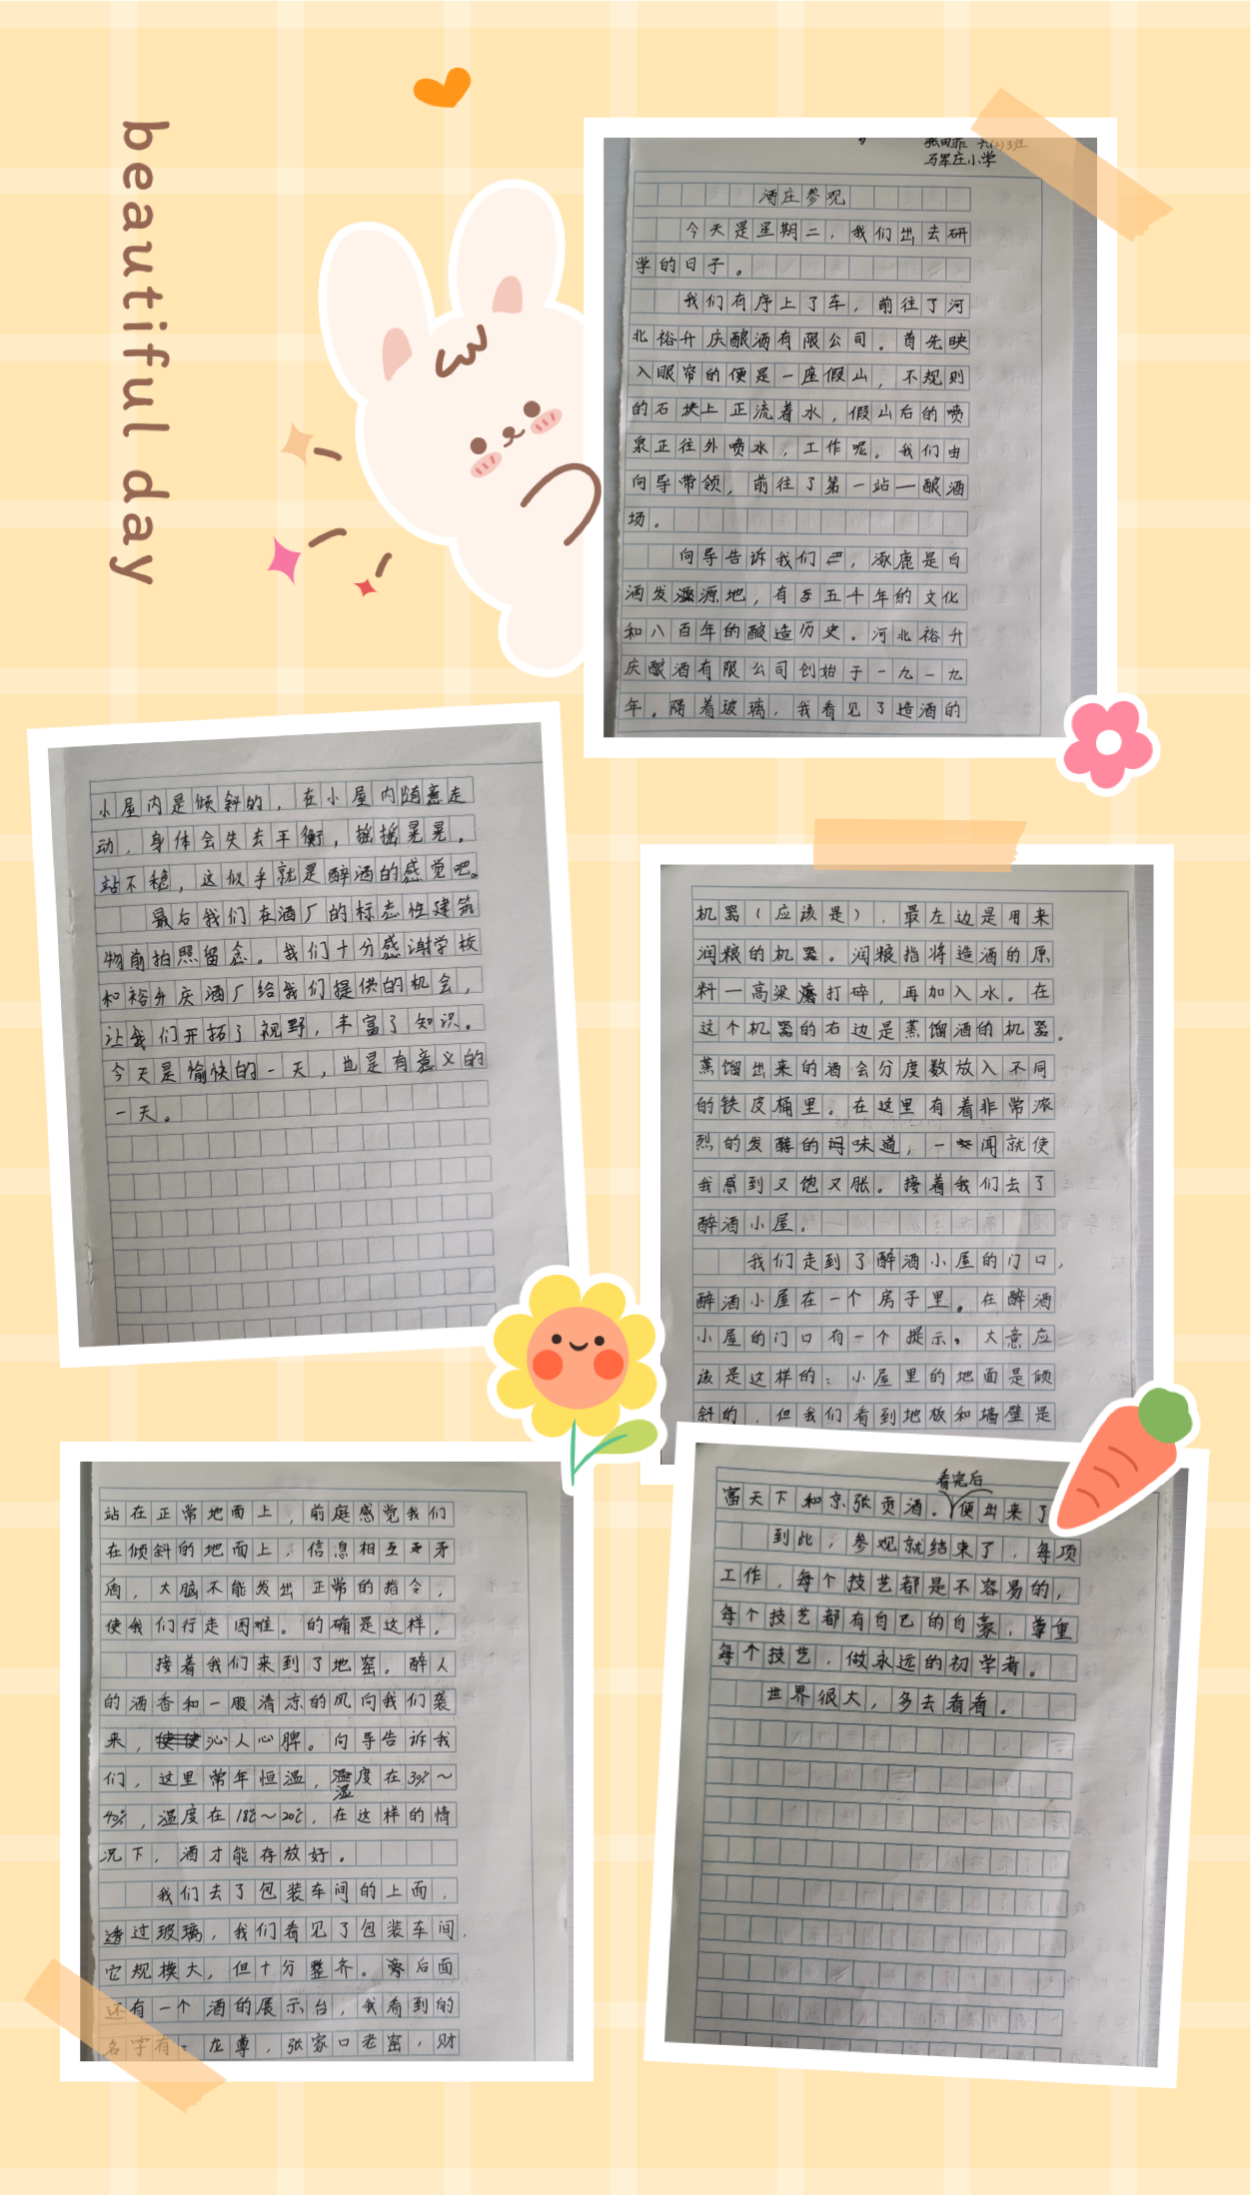 beautiful day
六(2)3班
万军庄小学
酒庄参观
今天是星期二，我们出去研
学的日子。
我们有序上了车，前往了河
北裕升庆酿酒有限公司。首先映
入眼帘的便是一座假山，不规则
的石块上正流着水，假山后的喷
泉正往外喷水，工作呢。我们由
向导带领，前往了第一站—酿酒
场。
向导告诉我们，涿鹿是白
酒发源地，有五千年的文化
和八百年的酿造历史。河北裕升
庆酿酒有限公司创始于一九一九
年。隔着玻璃，我看见了造酒的
小屋内是倾斜的，在小屋内随意走
动，身体会失去平衡，摇摇晃晃，
站不稳，这似乎就是醉酒的感觉吧。
最后我们在酒厂的标志性建筑
物前拍照留念。我们十分感谢学校
和裕升庆酒厂给我们提供的机会，
让我们开拓了视野，丰富了知识。
今天是愉快的一天，也是有意义的
一天。
机器（应该是），最左边是用来
润粮的机器。润粮指将造酒的原
料—高梁打碎，再加入水。在
这个机器的右边是蒸馏酒的机器。
蒸馏出来的酒会分度数放入不同
的铁皮桶里。在这里有着非常浓
烈的发酵的味道，一闻就使
我感到又饱又胀。接着我们去了
醉酒小屋。
我们走到了醉酒小屋的门口，
醉酒小屋在一个房子里。在醉酒
小屋的门口有一个提示，大意应
该是这样的：小屋里的地面是倾
斜的，但我们看到地板和墙壁是
站在正常地面上，前庭感觉我们
在倾斜的地面上，信息相互矛
盾，大脑不能发出正常的指令，
使我们行走困难。的确是这样。
接着我们来到了地窖。醉人
的酒香和一股清凉的风向我们袭
来，沁人心脾。向导告诉我
们，这里常年恒温，湿度在30%～
40%，温度在18℃～20℃，在这样的情
况下，酒才能存放好。
我们去了包装车间的上面，
透过玻璃，我们看见了包装车间，
它规模大，但十分整齐。后面
还有一个酒的展示台，我看到的
名字有：龙尊，张家口老窖，财
富天下和京张贡酒。看完后便出来了
到此，参观就结束了，每项
工作，每个技艺都是不容易的，
每个技艺都有自己的自豪，尊重
每个技艺，做永远的初学者。
世界很大，多去看看。